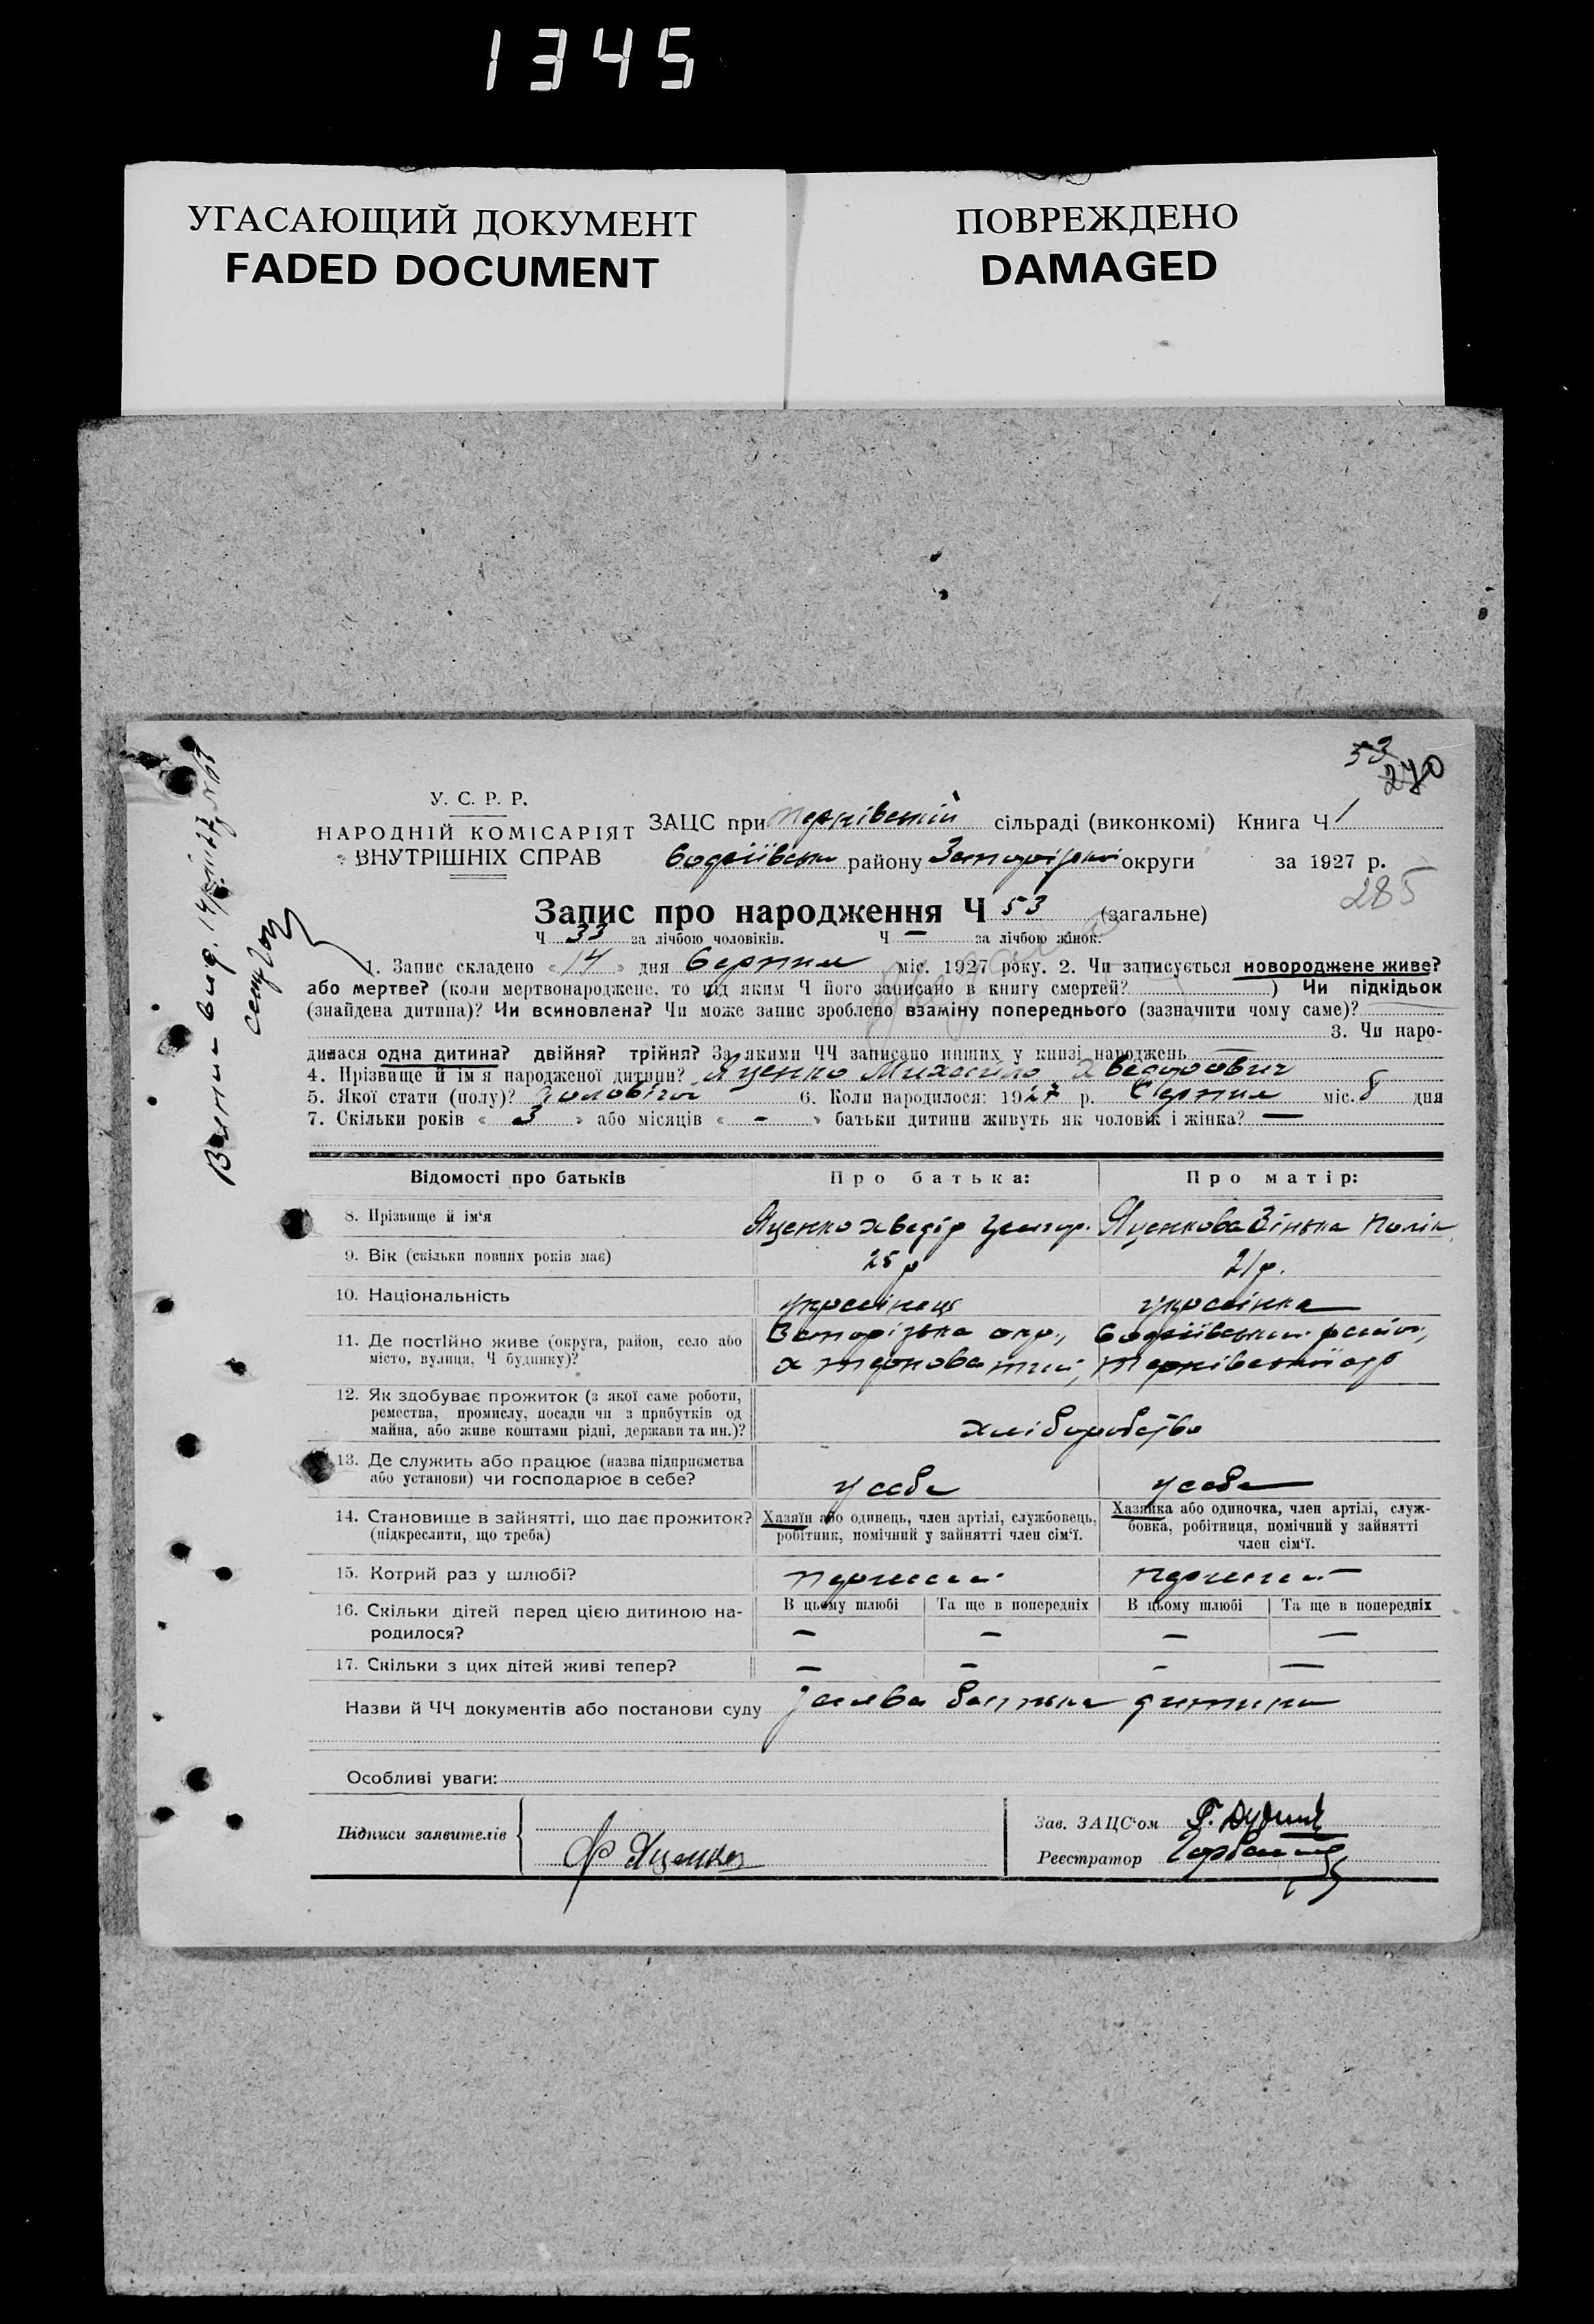 1345
УГАСАЮЩИЙ ДОКУМЕНТ
FADED DOCUMENT
ПОВРЕЖДЕНО
DAMAGED
53
270
У. С. Р. Р.
НАРОДНІЙ КОМІСАРІЯТ
ВНУТРІШНІХ СПРАВ
ЗАЦС при сільраді (виконкомі) Книга Ч 1
району округи за 1927 р.
285
Запис про народження Ч 53 (загальне)
Ч 33 за лічбою чоловіків. Ч — за лічбою жінок.
1. Запис складено « 14 » дня Серпня міс. 1927 року. 2. Чи записується новороджене живе?
або мертве? (коли мертвонароджене, то під яким Ч його записано в книгу смертей? ) Чи підкідьок
(знайдена дитина)? Чи всиновлена? Чи може запис зроблено взаміну попереднього (зазначити чому саме)?
3. Чи наро-
дилася одна дитина? двійня? трійня? За якими ЧЧ записано инших у книзі народжень —
4. Прізвище й ім'я народженої дитини? Яценко Михайло Хведорович
5. Якої стати (полу)? Чоловічої 6. Коли народилося: 1927 р. Серпня міс. 8 дня
7. Скільки років « 3 » або місяців « - » батьки дитини живуть як чоловік і жінка? —
Відомості про батьків Про батька: Про матір:
8. Прізвище й ім'я Яценко Хведір Яценкова Зінька
9. Вік (скільки повних років має) 25 р 21 р.
10. Національність українець українка
11. Де постійно живе (округа, район, село або
місто, вулиця, Ч будинку)?
Запорізька окр.,
12. Як здобуває прожиток (з якої саме роботи,
ремества, промислу, посади чи з прибутків од
майна, або живе коштами рідні, держави та ин.)?
хліборобство
13. Де служить або працює (назва підприємства
або установи) чи господарює в себе?
у себе у себе
14. Становище в зайнятті, що дає прожиток?
(підкреслити, що треба)
Хазяїн або одинець, член артілі, службовець,
робітник, помічний у зайнятті член сім'ї.
Хазяйка або одиночка, член артілі, служ-
бовка, робітниця, помічний у зайнятті
член сім'ї.
15. Котрий раз у шлюбі? перший перший
16. Скільки дітей перед цією дитиною на-
родилося?
В цьому шлюбі Та ще в попередніх В цьому шлюбі Та ще в попередніх
— — — —
17. Скільки з цих дітей живі тепер? — — — —
Назви й ЧЧ документів або постанови суду заява батька дитини
Особливі уваги:
Підписи заявителів
Ф Яценко
Зав. ЗАЦС'ом
Реєстратор